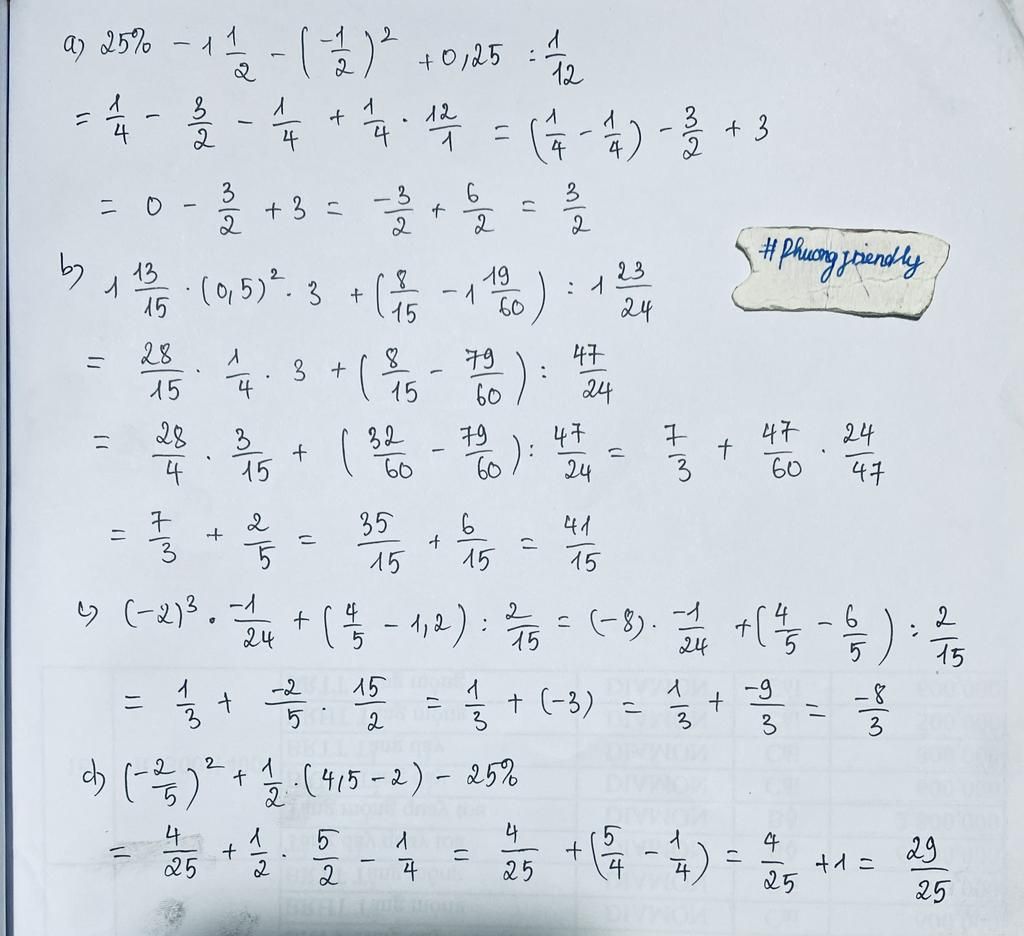 a) 25% - 1 1/2 - (-1/2)² + 0,25 : 1/12
= 1/4 - 3/2 - 1/4 + 1/4 . 12/1 = (1/4 - 1/4) - 3/2 + 3
= 0 - 3/2 + 3 = -3/2 + 6/2 = 3/2
#Phuongfriendly
b) 1 13/15 . (0,5)² . 3 + (8/15 - 1 19/60) : 1 23/24
= 28/15 . 1/4 . 3 + (8/15 - 79/60) : 47/24
= 28/4 . 3/15 + (32/60 - 79/60) : 47/24 = 7/3 + 47/60 . 24/47
= 7/3 + 2/5 = 35/15 + 6/15 = 41/15
c) (-2)³ . -1/24 + (4/5 - 1,2) : 2/15 = (-8) . -1/24 + (4/5 - 6/5) : 2/15
= 1/3 + -2/5 . 15/2 = 1/3 + (-3) = 1/3 + -9/3 = -8/3
d) (-2/5)² + 1/2 . (4,5 - 2) - 25%
= 4/25 + 1/2 . 5/2 - 1/4 = 4/25 + (5/4 - 1/4) = 4/25 + 1 = 29/25